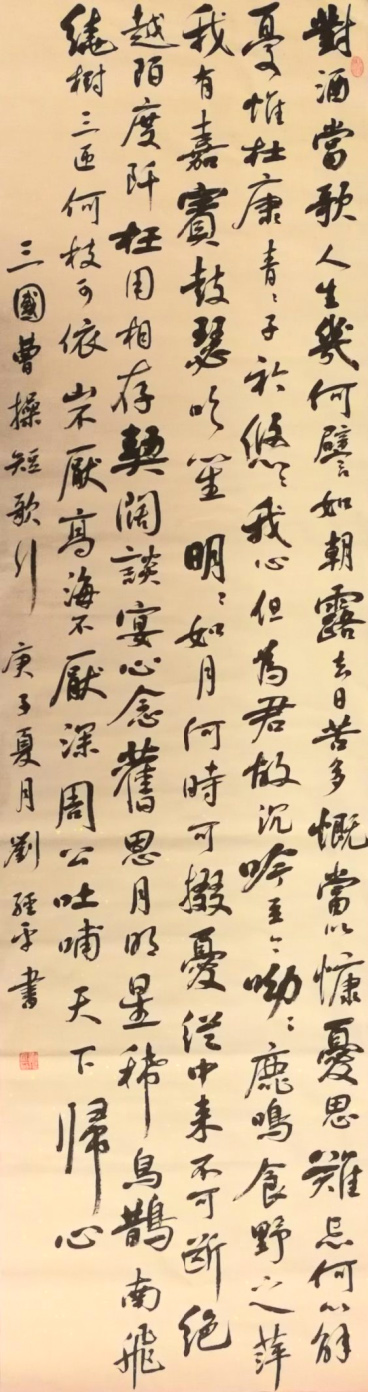 對酒當歌人生幾何譬如朝露去日苦多慨當以慷憂思難忘何以解
憂惟杜康青〻子衿悠〻我心但為君故沉吟至今呦〻鹿鳴食野之萍
我有嘉賓鼓瑟吹笙明〻如月何時可掇憂從中来不可斷絕
越陌度阡枉用相存契闊談宴心念舊恩月明星稀烏鵲南飛
繞樹三匝何枝可依山不厭高海不厭深周公吐哺天下歸心
三國曹操短歌行庚子夏月劉經平書